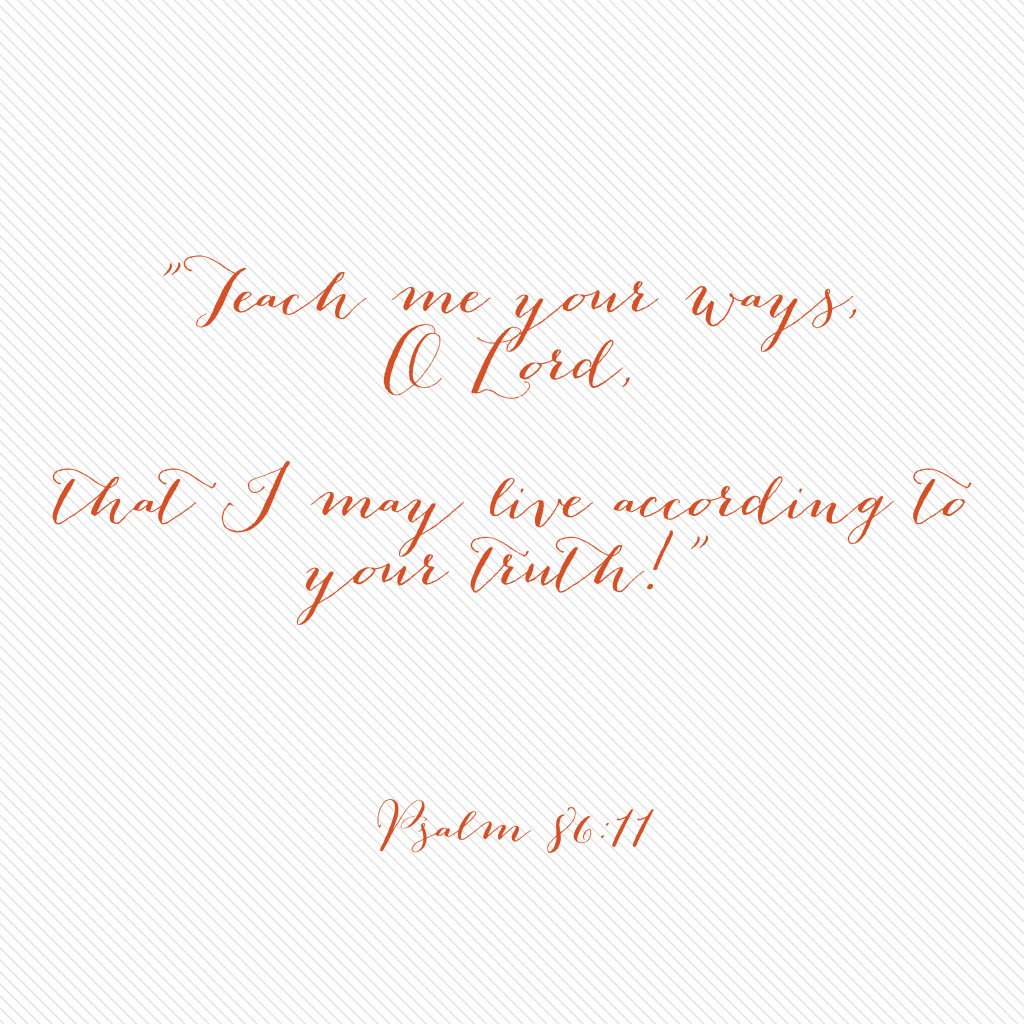 "Teach me your ways,
O Lord,
that I may live according to
your truth!"
Psalm 86:11